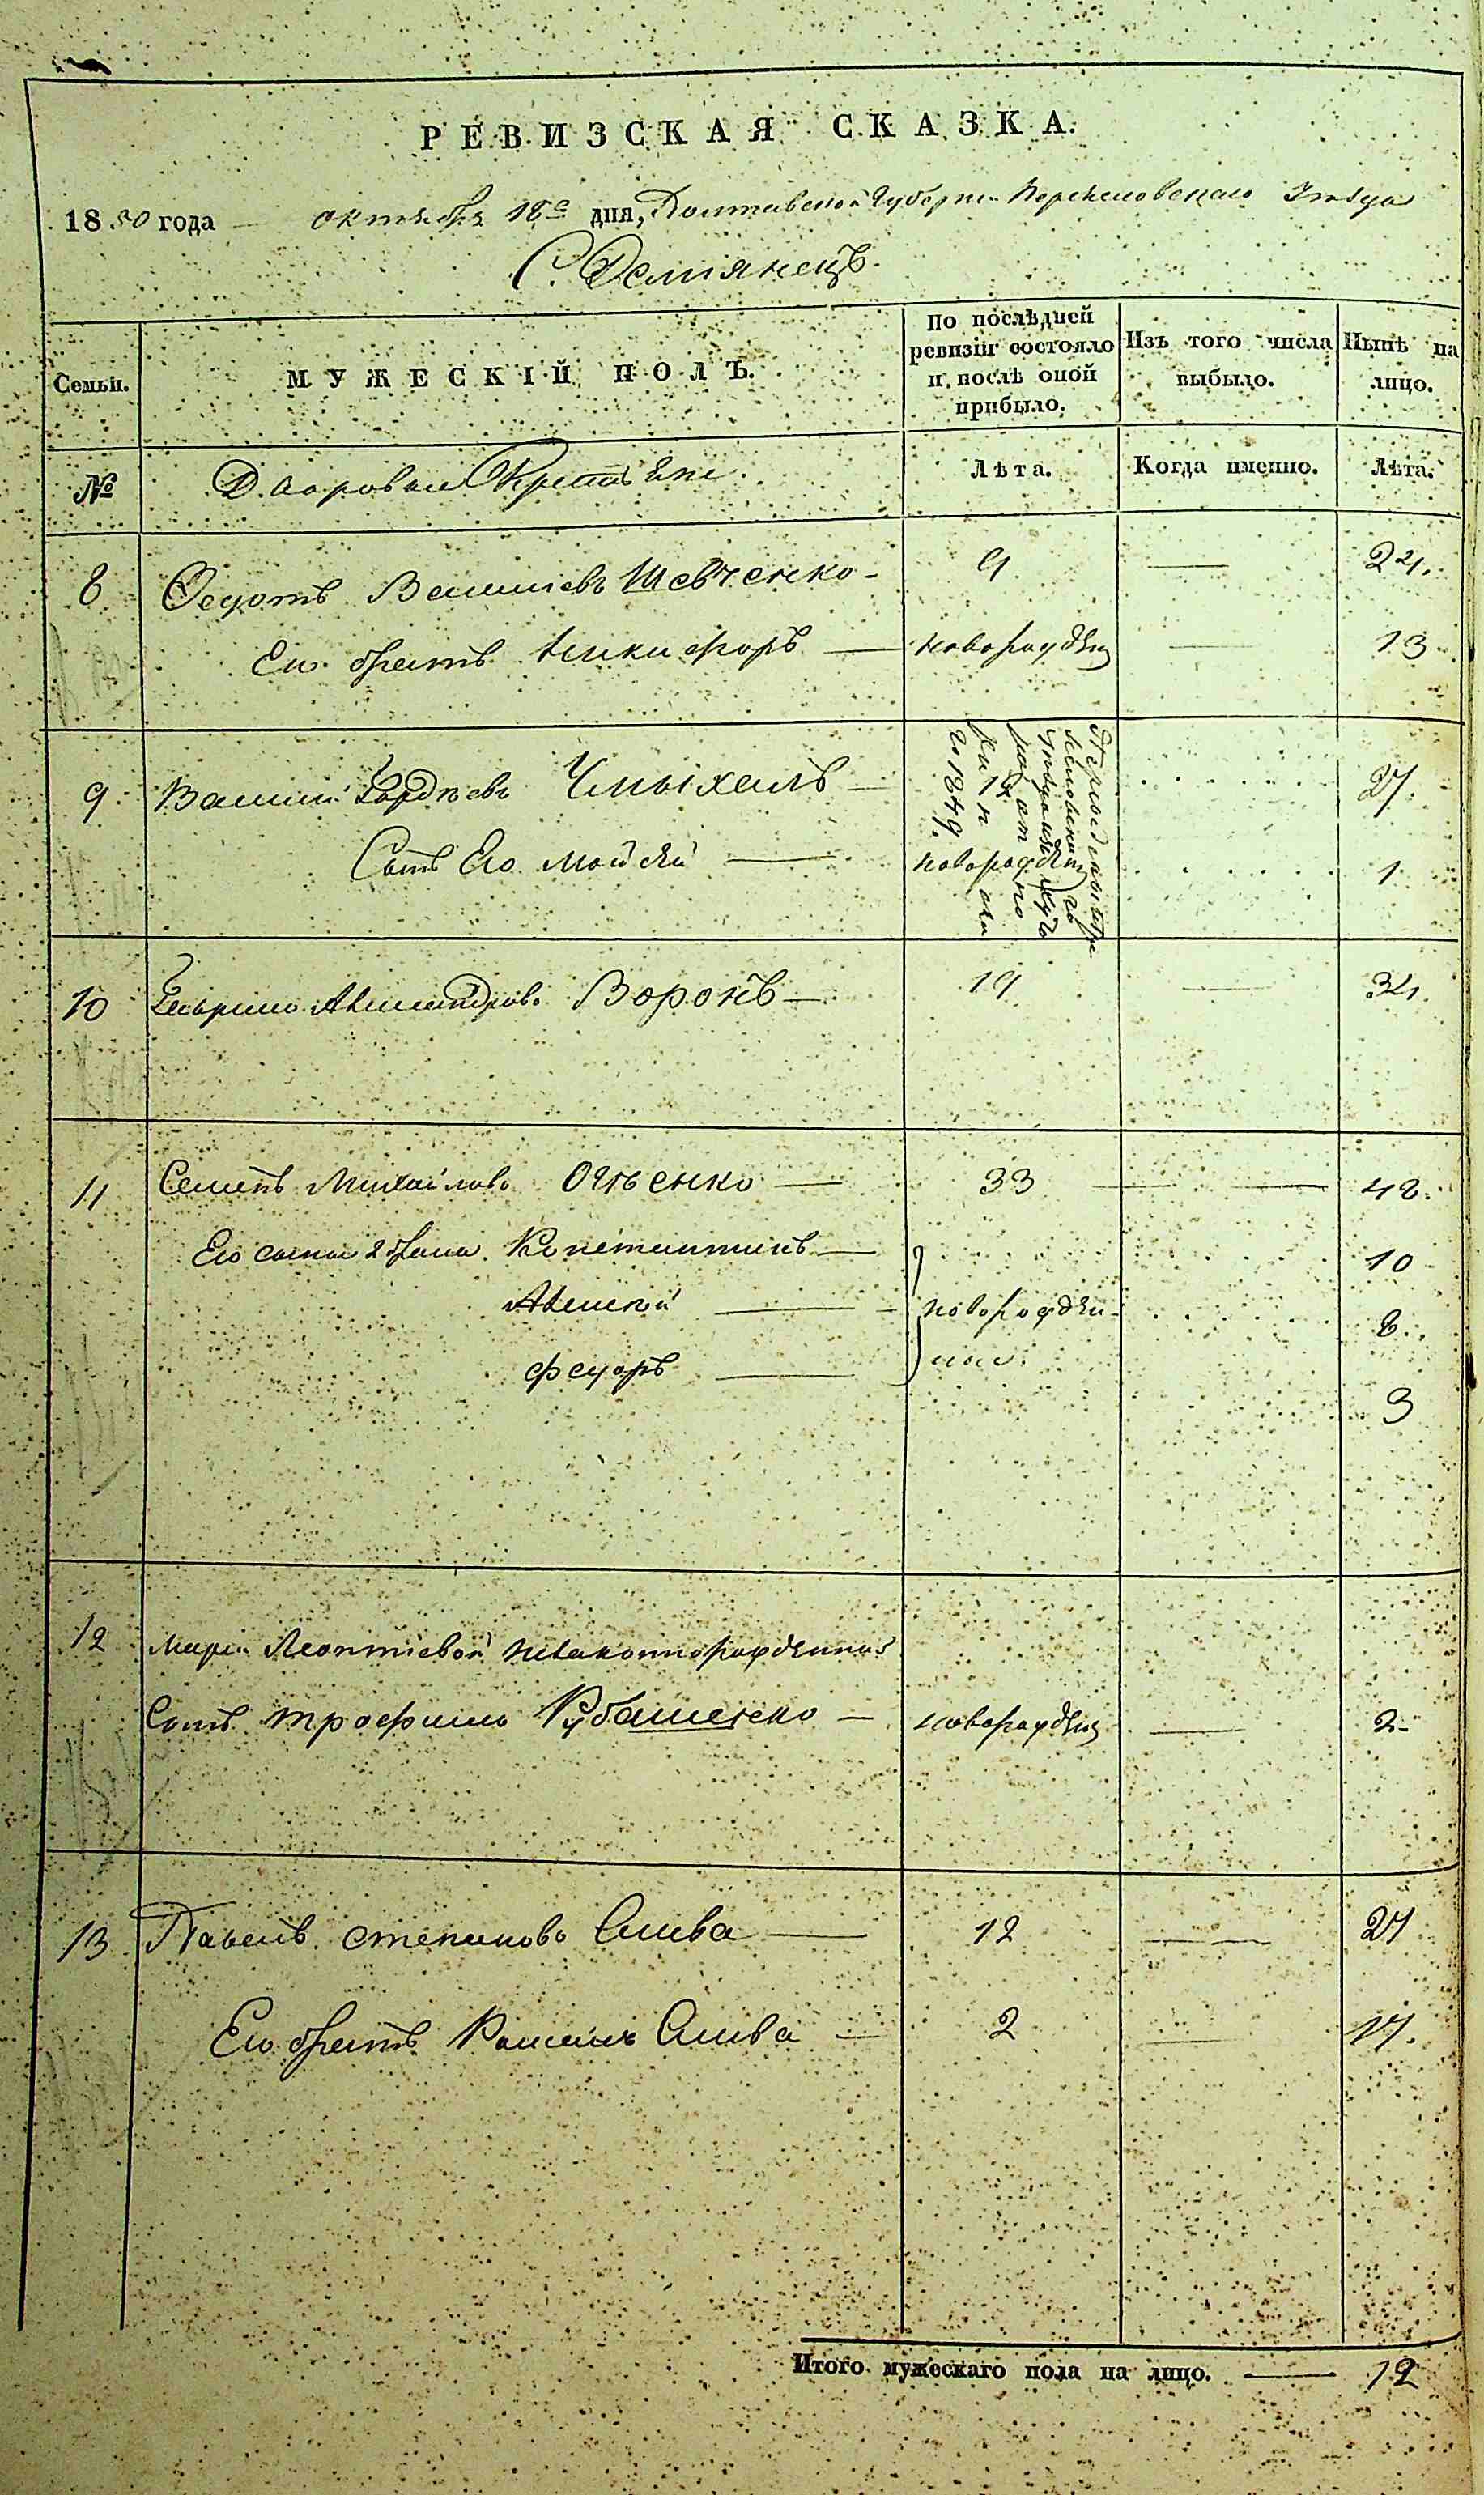 РЕВИЗСКАЯ СКАЗКА.
1850 года — октября 18го дня, Полтавской Губернии Переяслов­скаго Уѣзда
С. Демянецъ.
Семьи.
МУЖЕСКІЙ ПОЛЪ.
По послѣдней
ревизіи состояло
и послѣ оной
прибыло.
Изъ того числа
выбыло.
Нынѣ на
лицо.
№
Дворовые Крестьяне.
Лѣта.
Когда именно.
Лѣта.
8 Федотъ Васильевъ Шевченко — 9 — 24.
Его братъ Никифоръ — новорожден — 13
9. Василий Чмыхалъ — 27.
1849.
Сынъ Его Мойсей — новорожден 1
10 Александровъ Воронъ — 19 — 34.
11 Семенъ Михайловъ — 33 — 48.
Его сыновья 2 брака Константинъ — 10
Алексей — новорожден- 8.
Федоръ — ные 3
12 Марьи Леонтіевой незаконнорожденной
Сынъ Трофимъ Рубашенко — новорожден — 2
13 Павелъ Степановъ Слива — 12 — 27
Его братъ Романъ Слива — 2 — 17.
Итого мужескаго пола на лицо. — 12